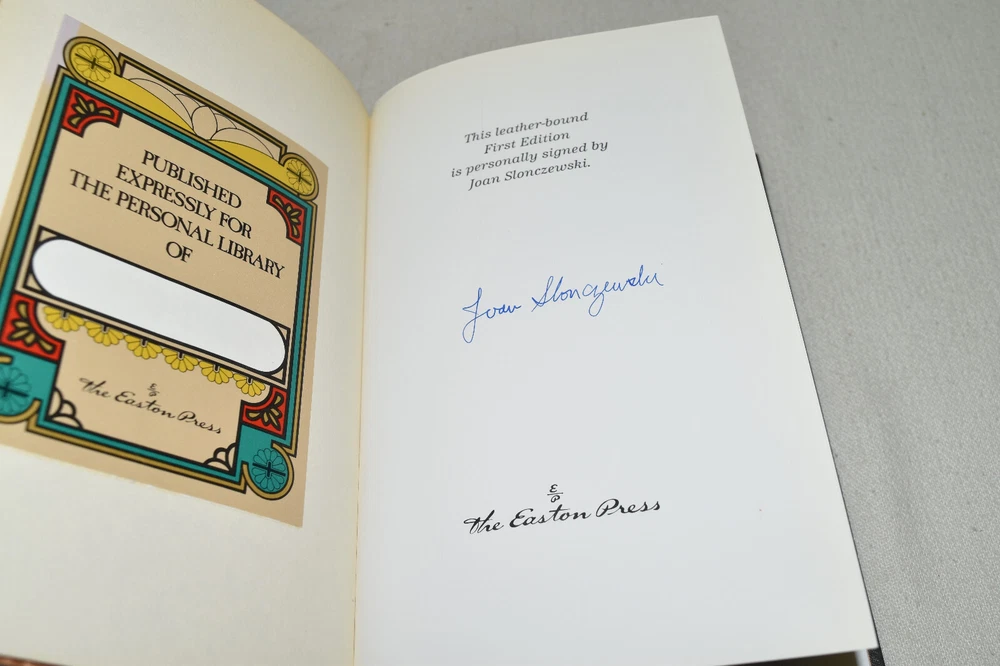 PUBLISHED
EXPRESSLY FOR
THE PERSONAL LIBRARY
OF
E
P
The Easton Press
This leather-bound
First Edition
is personally signed by
Joan Slonczewski.
Joan Slonczewski
E
P
The Easton Press